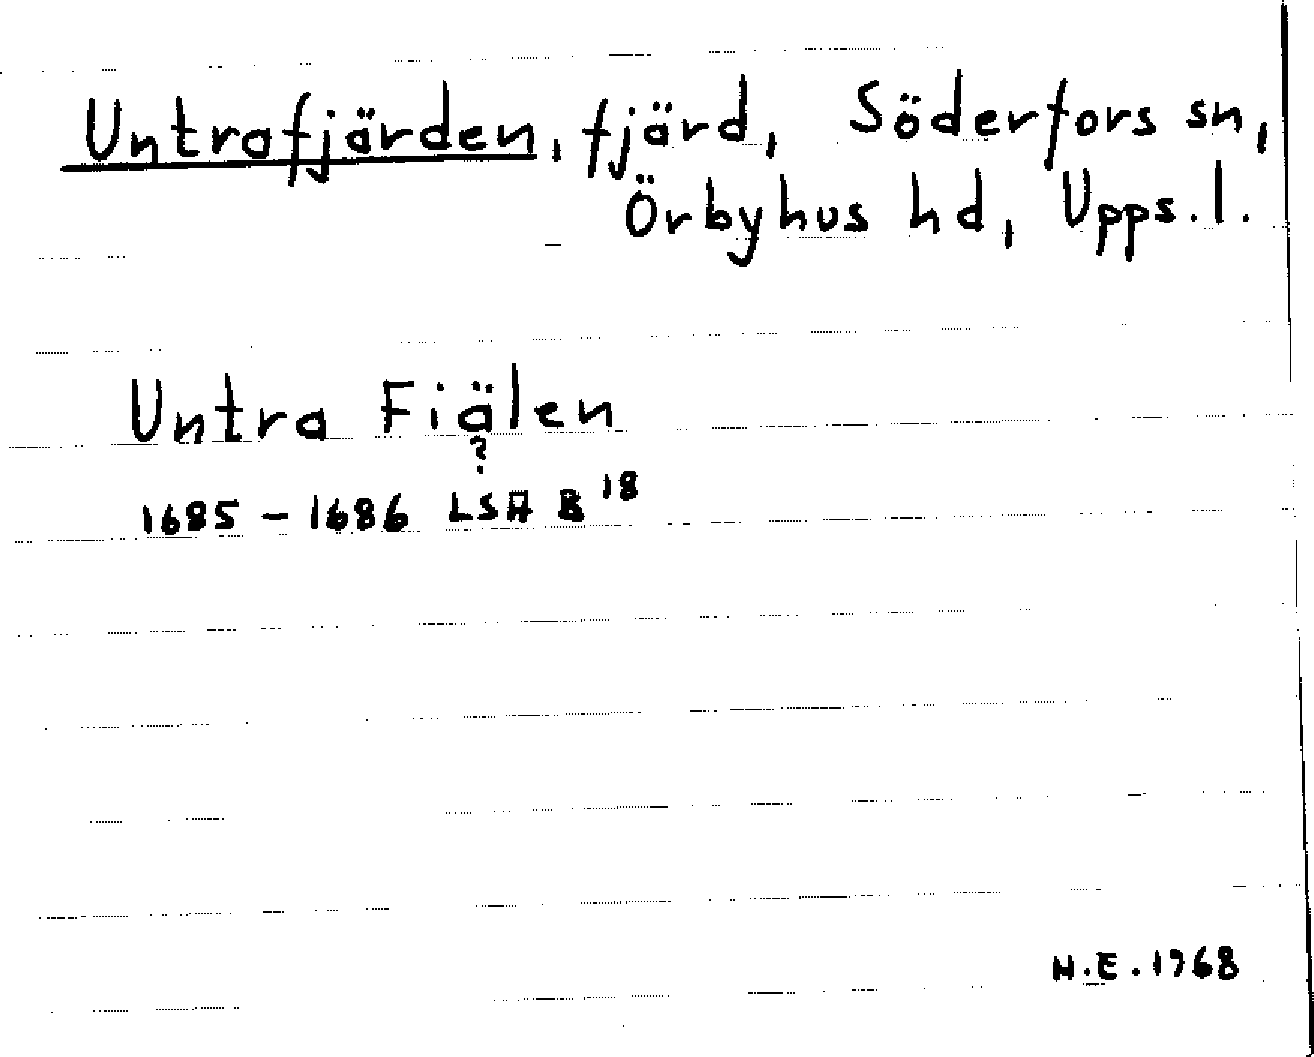 Untrafjärden, fjärd, Söderfors sn,
Örbyhus hd, Upps. l.
Untra Fiälen
?
1685 - 1686 LSA B 18
H.E. 1968